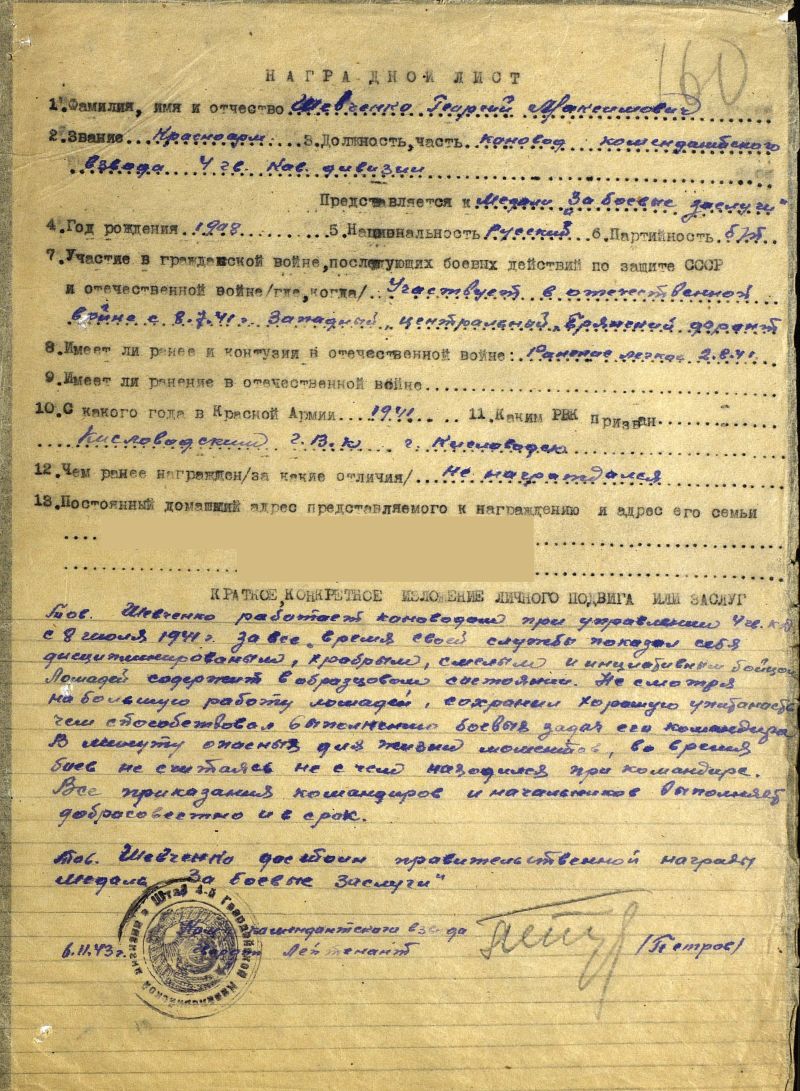 160
НАГРАДНОЙ ЛИСТ
1. Фамилия, имя и отчество Шевченко Георгий Максимович
2. Звание Красноарм 3. Должность, часть коновод комендантского
взвода 4 гв. Кав. дивизии
Представляется к Медали „За боевые заслуги"
4. Год рождения 1908 5. Национальность русский 6. Партийность б/п
7. Участие в гражданской войне, последующих боевых действий по защите СССР
и отечественной войне/где, когда/ Участвует в отечественной
войне с 8.7.41г. Западный, центральный, Брянский фронт
8. Имеет ли ранее и контузии в отечественной войне: Ранение легкое 2.8.41г.
9. Имеет ли ранение в отечественной войне
10. С какого года в Красной Армии 1941 11. Каким РВК призван
Кисловодским г.В.К г. Кисловодск
12. Чем ранее награжден/за какие отличия/ не награждался
13. Постоянный домашний адрес представляемого к награждению и адрес его семьи
КРАТКОЕ, КОНКРЕТНОЕ ИЗЛОЖЕНИЕ ЛИЧНОГО ПОДВИГА ИЛИ ЗАСЛУГ
Тов. Шевченко работает коноводом при управлении 4 гв. к.д
с 8 июля 1941г. За все время своей службы показал себя
дисциплинированым, храбрым, смелым и инциативным бойцом
Лошадей содержит в образцовом состоянии. Не смотря
на большую работу лошадей, сохранил хорошую упитаность
чем способствовал выполнению боевых задач его командира
В минуту опасных для жизни моментов, во время
боев не считаясь не с чем находился при командире.
Все приказания командиров и начальников выполняет
добросовестно и в срок.
Тов. Шевченко достоин правительственной награды
медаль „За боевые заслуги"
Штаб 4-й Гвардейской Кавалерийской дивизии
Ком. комендантского взвода
6.11.43г. Гвардии Лейтенант /Петров/